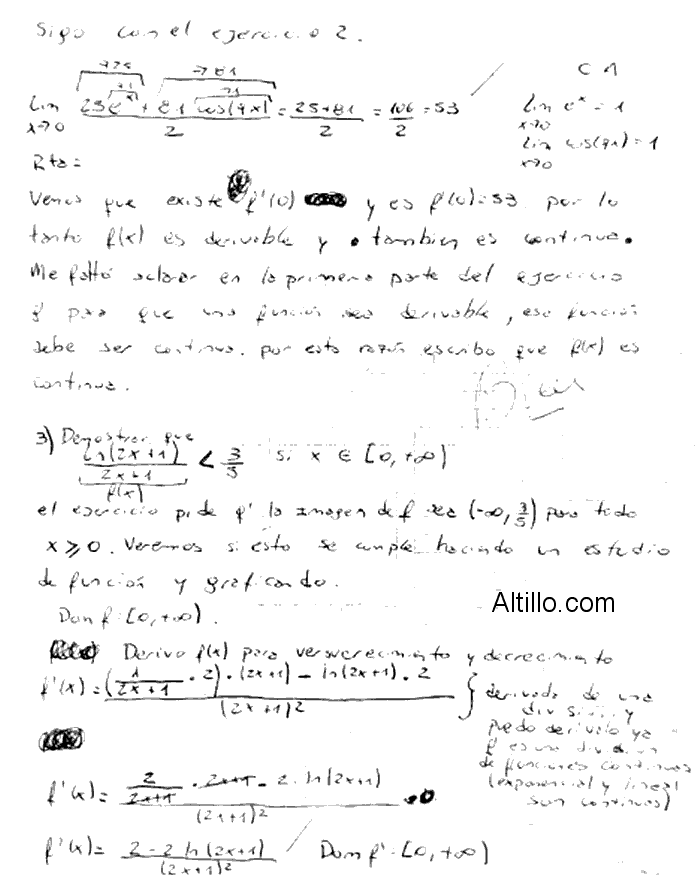 Sigo con el ejercicio 2.
→25 →81 C A
Lim x→0 (25e^x + 81 cos(9x))/2 = (25+81)/2 = 106/2 = 53
Lim x→0 e^x = 1
Lim x→0 cos(9x) = 1
Rta=
Vemos que existe f'(0) y es f'(0)=53 por lo
tanto f(x) es derivable y tambien es continua.
Me faltó aclarar en la primera parte del ejercicio
q para que una función sea derivable, esa función
debe ser continua. por esta razón escribo que f(x) es
continua.
3) Demostrar que
ln(2x+1)/(2x+1) < 3/5 si x ∈ [0,+∞)
f(x)
el ejercicio pide q' la imagen de f sea (-∞, 3/5) para todo
x ⩾ 0. Veremos si esto se cumple haciendo un estudio
de función y graficando.
Altillo.com
Dom f: [0,+∞).
Derivo f(x) para ver crecimiento y decrecimiento
f'(x) = ((1/(2x+1) · 2) · (2x+1) - ln(2x+1) · 2)/(2x+1)²
} derivada de una
división y
puedo derivarlo ya
q es una división
de funciones continuas
(exponencial y lineal
son continuas)
f'(x) = (2/(2x+1) · 2x+1 - 2 · ln(2x+1))/(2x+1)²
f'(x) = (2 - 2 ln(2x+1))/(2x+1)² Dom f': [0,+∞)